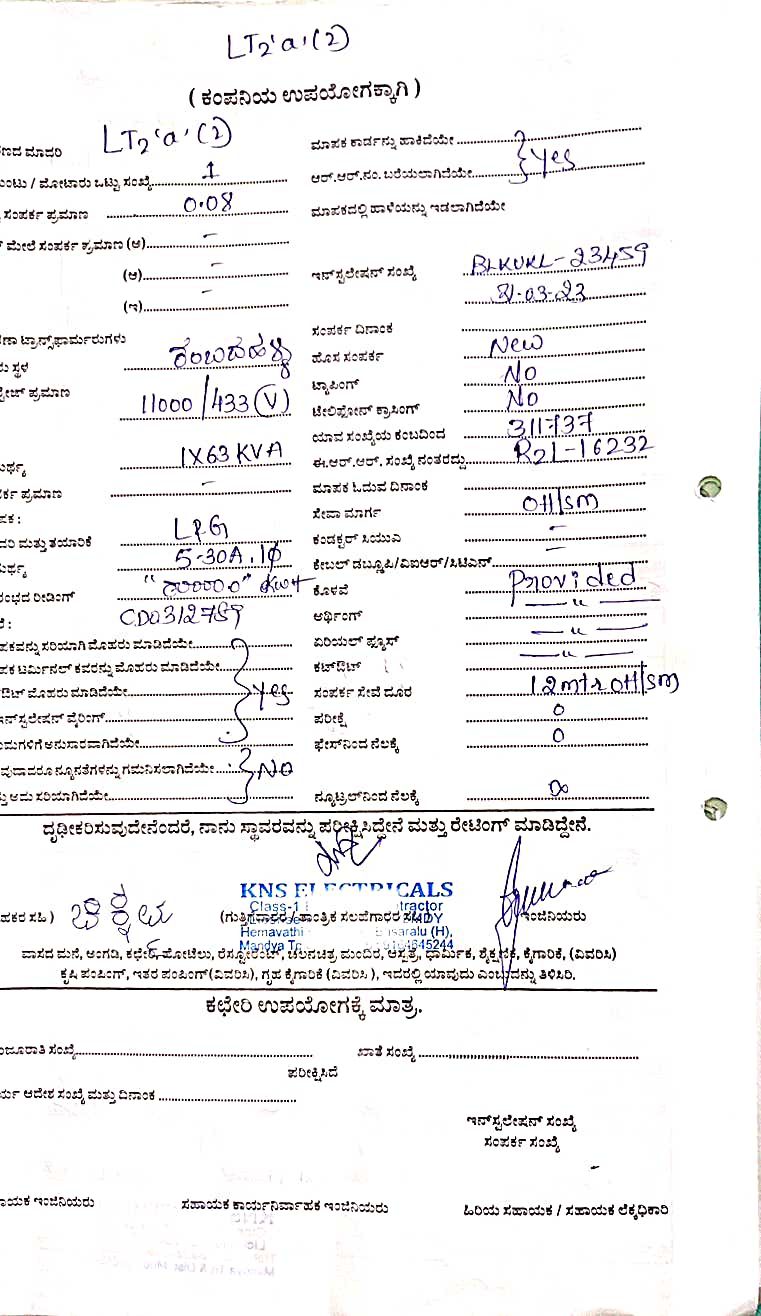 LT2'a'(2)
( ಕಂಪನಿಯ ಉಪಯೋಗಕ್ಕಾಗಿ )
ಣದ ಮಾದರಿ LT2'a'(2) ಮಾಪಕ ಕಾರ್ಡನ್ನು ಹಾಕಿದೆಯೇ
ಂಟು / ಮೋಟಾರು ಒಟ್ಟು ಸಂಖ್ಯೆ 1 ಆರ್.ಆರ್.ನಂ. ಬರೆಯಲಾಗಿದೆಯೇ } Yes
ಸಂಪರ್ಕ ಪ್ರಮಾಣ 0.08 ಮಾಪಕದಲ್ಲಿ ಹಾಳೆಯನ್ನು ಇಡಲಾಗಿದೆಯೇ
ಮೇಲೆ ಸಂಪರ್ಕ ಪ್ರಮಾಣ (ಅ) -
(ಆ) - ಇನ್‌ಸ್ಟಲೇಷನ್ ಸಂಖ್ಯೆ BLKUKL-23459
(ಇ) - 31-03-23
ಣಾ ಟ್ರಾನ್ಸ್‌ಫಾರ್ಮರುಗಳು ಸಂಪರ್ಕ ದಿನಾಂಕ
ು ಸ್ಥಳ ಕಂಬದಹಳ್ಳಿ ಹೊಸ ಸಂಪರ್ಕ New
ಪ್ರಮಾಣ 11000/433(V) ಟ್ಯಾಪಿಂಗ್ No
ಟೆಲಿಫೋನ್ ಕ್ರಾಸಿಂಗ್ No
ಯಾವ ಸಂಖ್ಯೆಯ ಕಂಬದಿಂದ 311737
ರ್ಥ್ಯ 1X63 KVA ಈ.ಆರ್.ಆರ್. ಸಂಖ್ಯೆ ನಂತರದ್ದು R2L-16232
ರ್ಕ ಪ್ರಮಾಣ - ಮಾಪಕ ಓದುವ ದಿನಾಂಕ
ಪಕ : ಸೇವಾ ಮಾರ್ಗ OH/SM
ದರಿ ಮತ್ತು ತಯಾರಿಕೆ L&G ಕಂಡಕ್ಟರ್ ಸಿಯುಎ -
ರ್ಥ್ಯ 5-30A, 1φ ಕೇಬಲ್ ಡಬ್ಲ್ಯೂಪಿ/ವಿಐಆರ್/ಸಿಟಿಎನ್ -
ಂಭದ ರೀಡಿಂಗ್ ಕೊಳವೆ Provided
: CD0312759 ಅರ್ಥಿಂಗ್ — " —
ಪಕವನ್ನು ಸರಿಯಾಗಿ ಮೊಹರು ಮಾಡಿದೆಯೇ ಏರಿಯಲ್ ಫ್ಯೂಸ್ — " —
ಪಕ ಟರ್ಮಿನಲ್ ಕವರನ್ನು ಮೊಹರು ಮಾಡಿದೆಯೇ ಕಟ್‌ಔಟ್ — " —
ಔಟ್ ಮೊಹರು ಮಾಡಿದೆಯೇ } Yes ಸಂಪರ್ಕ ಸೇವೆ ದೂರ 12mtr OH/SM
ಇನ್‌ಸ್ಟಲೇಷನ್ ವೈರಿಂಗ್ ಪರೀಕ್ಷೆ 0
ಮಗಳಿಗೆ ಅನುಸಾರವಾಗಿದೆಯೇ ಫೇಸ್‌ನಿಂದ ನೆಲಕ್ಕೆ 0
ವುದಾದರೂ ನ್ಯೂನತೆಗಳನ್ನು ಗಮನಿಸಲಾಗಿದೆಯೇ } NO
ಅದು ಸರಿಯಾಗಿದೆಯೇ ನ್ಯೂಟ್ರಲ್‌ನಿಂದ ನೆಲಕ್ಕೆ ∞
ದೃಢೀಕರಿಸುವುದೇನೆಂದರೆ, ನಾನು ಸ್ಥಾವರವನ್ನು ಪರೀಕ್ಷಿಸಿದ್ದೇನೆ ಮತ್ತು ರೇಟಿಂಗ್ ಮಾಡಿದ್ದೇನೆ.
KNS ELECTRICALS
Class-1 tractor
ಹಕರ ಸಹಿ ) (ಗುತ್ತಿಗೆದಾರರ / ತಾಂತ್ರಿಕ ಸಲಹೆಗಾರರ ಸಹಿ) ಇಂಜಿನಿಯರು
Hemavathi saralu (H),
Mandya 645244
ವಾಸದ ಮನೆ, ಅಂಗಡಿ, ಕಛೇರಿ, ಹೋಟೆಲು, ರೆಸ್ಟೋರೆಂಟ್, ಚಲನಚಿತ್ರ ಮಂದಿರ, ಆಸ್ಪತ್ರೆ, ಧಾರ್ಮಿಕ, ಶೈಕ್ಷಣಿಕ, ಕೈಗಾರಿಕೆ, (ವಿವರಿಸಿ)
ಕೃಷಿ ಪಂಪಿಂಗ್, ಇತರ ಪಂಪಿಂಗ್(ವಿವರಿಸಿ), ಗೃಹ ಕೈಗಾರಿಕೆ (ವಿವರಿಸಿ ), ಇದರಲ್ಲಿ ಯಾವುದು ಎಂಬುದನ್ನು ತಿಳಿಸಿರಿ.
ಕಛೇರಿ ಉಪಯೋಗಕ್ಕೆ ಮಾತ್ರ.
ಜೂರಾತಿ ಸಂಖ್ಯೆ ಖಾತೆ ಸಂಖ್ಯೆ
ಪರೀಕ್ಷಿಸಿದೆ
ರ್ಯ ಆದೇಶ ಸಂಖ್ಯೆ ಮತ್ತು ದಿನಾಂಕ
ಇನ್‌ಸ್ಟಲೇಷನ್ ಸಂಖ್ಯೆ
ಸಂಪರ್ಕ ಸಂಖ್ಯೆ
ಾಯಕ ಇಂಜಿನಿಯರು ಸಹಾಯಕ ಕಾರ್ಯನಿರ್ವಾಹಕ ಇಂಜಿನಿಯರು ಹಿರಿಯ ಸಹಾಯಕ / ಸಹಾಯಕ ಲೆಕ್ಕಧಿಕಾರಿ